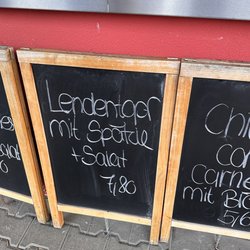 Lendentopf
mit Spätzle
+ Salat
7,80
Chi
con
carne
mit B
5,